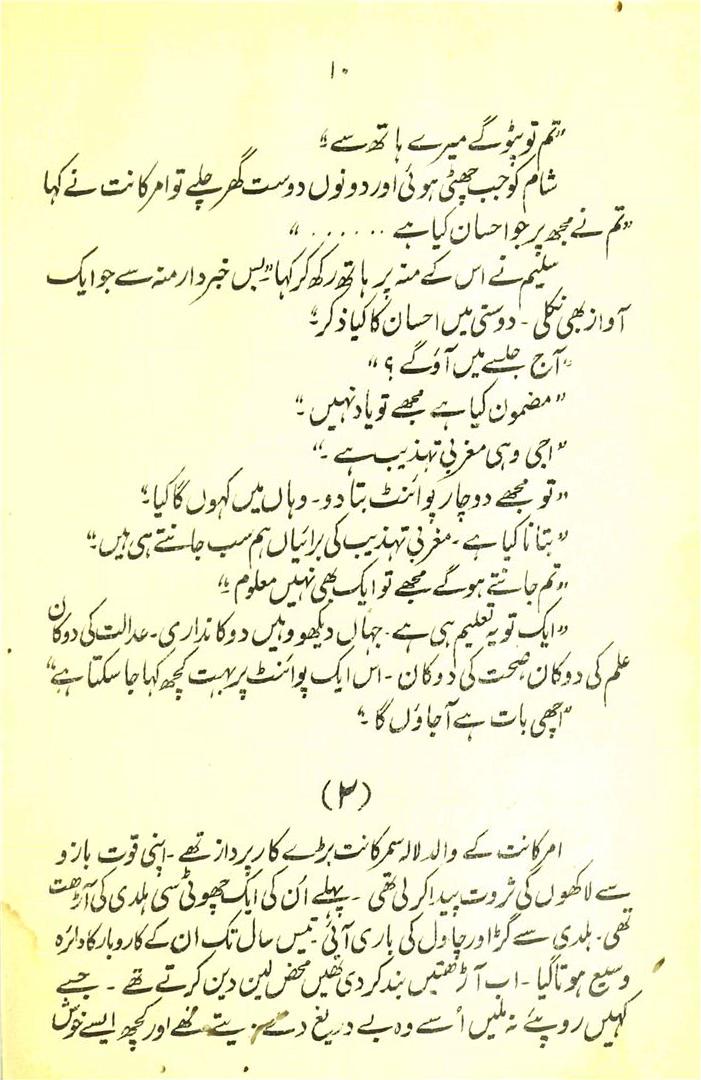 ۱۰
"تم تو پٹو گے میرے ہاتھ سے۔"
شام کو جب چھٹی ہوئی اور دونوں دوست گھر چلے تو امرکانت نے کہا
"تم نے مجھ پر جو احسان کیا ہے ......"
سلیم نے اس کے منہ پر ہاتھ رکھ کر کہا "بس خبردار منہ سے جو ایک
آواز بھی نکلی۔ دوستی میں احسان کا کیا ذکر۔"
"آج جلسے میں آؤ گے؟"
"مضمون کیا ہے مجھے تو یاد نہیں۔"
"اجی وہی مغربی تہذیب ہے۔"
"تو مجھے دو چار پوائنٹ بتا دو۔ وہاں میں کہوں گا کیا۔"
"بتانا کیا ہے۔ مغربی تہذیب کی برائیاں ہم سب جانتے ہی ہیں۔"
"تم جانتے ہو گے مجھے تو ایک بھی نہیں معلوم۔"
"ایک تو یہ تعلیم ہی ہے۔ جہاں دیکھو وہیں دوکانداری۔ عدالت کی دوکان
علم کی دوکان۔ صحت کی دوکان۔ اس ایک پوائنٹ پر بہت کچھ کہا جا سکتا ہے"
"اچھی بات ہے آجاؤں گا۔"
(۲)
امرکانت کے والد لالہ سمرکانت بڑے کارپرداز تھے۔ اپنی قوت بازو
سے لاکھوں کی ثروت پیدا کر لی تھی۔ پہلے اُن کی ایک چھوٹی سی ہلدی کی آڑھت
تھی۔ ہلدی سے گڑ اور چاول کی باری آئی۔ تیس سال تک ان کے کاروبار کا دائرہ
وسیع ہوتا گیا۔ اب آڑھتیں بند کر دی تھیں محض لین دین کرتے تھے۔ جسے
کہیں روپئے نہ ملیں اُسے وہ بے دریغ دے دیتے تھے اور کچھ ایسے خوش